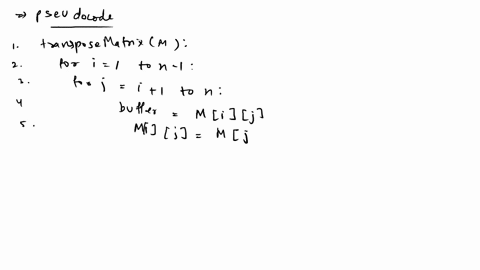 => pseudocode
1. transposeMatrix(M):
2. for i = 1 to n-1:
3. for j = i+1 to n:
4 buffer = M[i][j]
5. M[i][j] = M[j